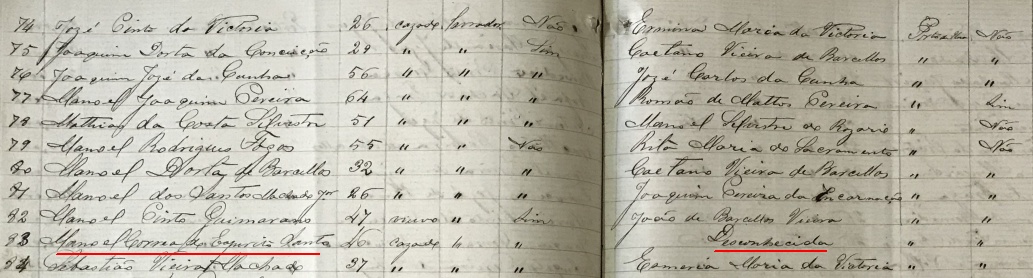 74 Jozé Pinto da Victoria 26 cazado Lavrador Não Erminia Maria da Victoria Não
75 Joaquim Dorta da Conceição 29 " " Sim Caetano Vieira de Barcellos " "
76 Joaquim Jozé da Cunha 56 " " " Jozé Carlos da Cunha " "
77 Manoel Joaquim Pereira 64 " " " Romão de Mattos Pereira " Sim
78 Mathias da Costa Silvestre 51 " " " Manoel Silvestre do Rozario " Não
79 Manoel Rodrigues 55 " " Não Rita Maria do Sacramento " Não
80 Manoel Dorta de Barcellos 32 " " " Caetano Vieira de Barcellos " "
81 Manoel dos Santos Machado Jor 26 " " " Joaquim Pereira da Encarnação " "
82 Manoel Pinto Guimarans 47 viuvo " Sim João de Barcellos Vieira " "
83 Manoel Correa do Espirito Santo 46 cazado " " Desconhecida " "
84 Sebastião Vieira Machado 37 " " " Esmeria Maria da Victoria " "